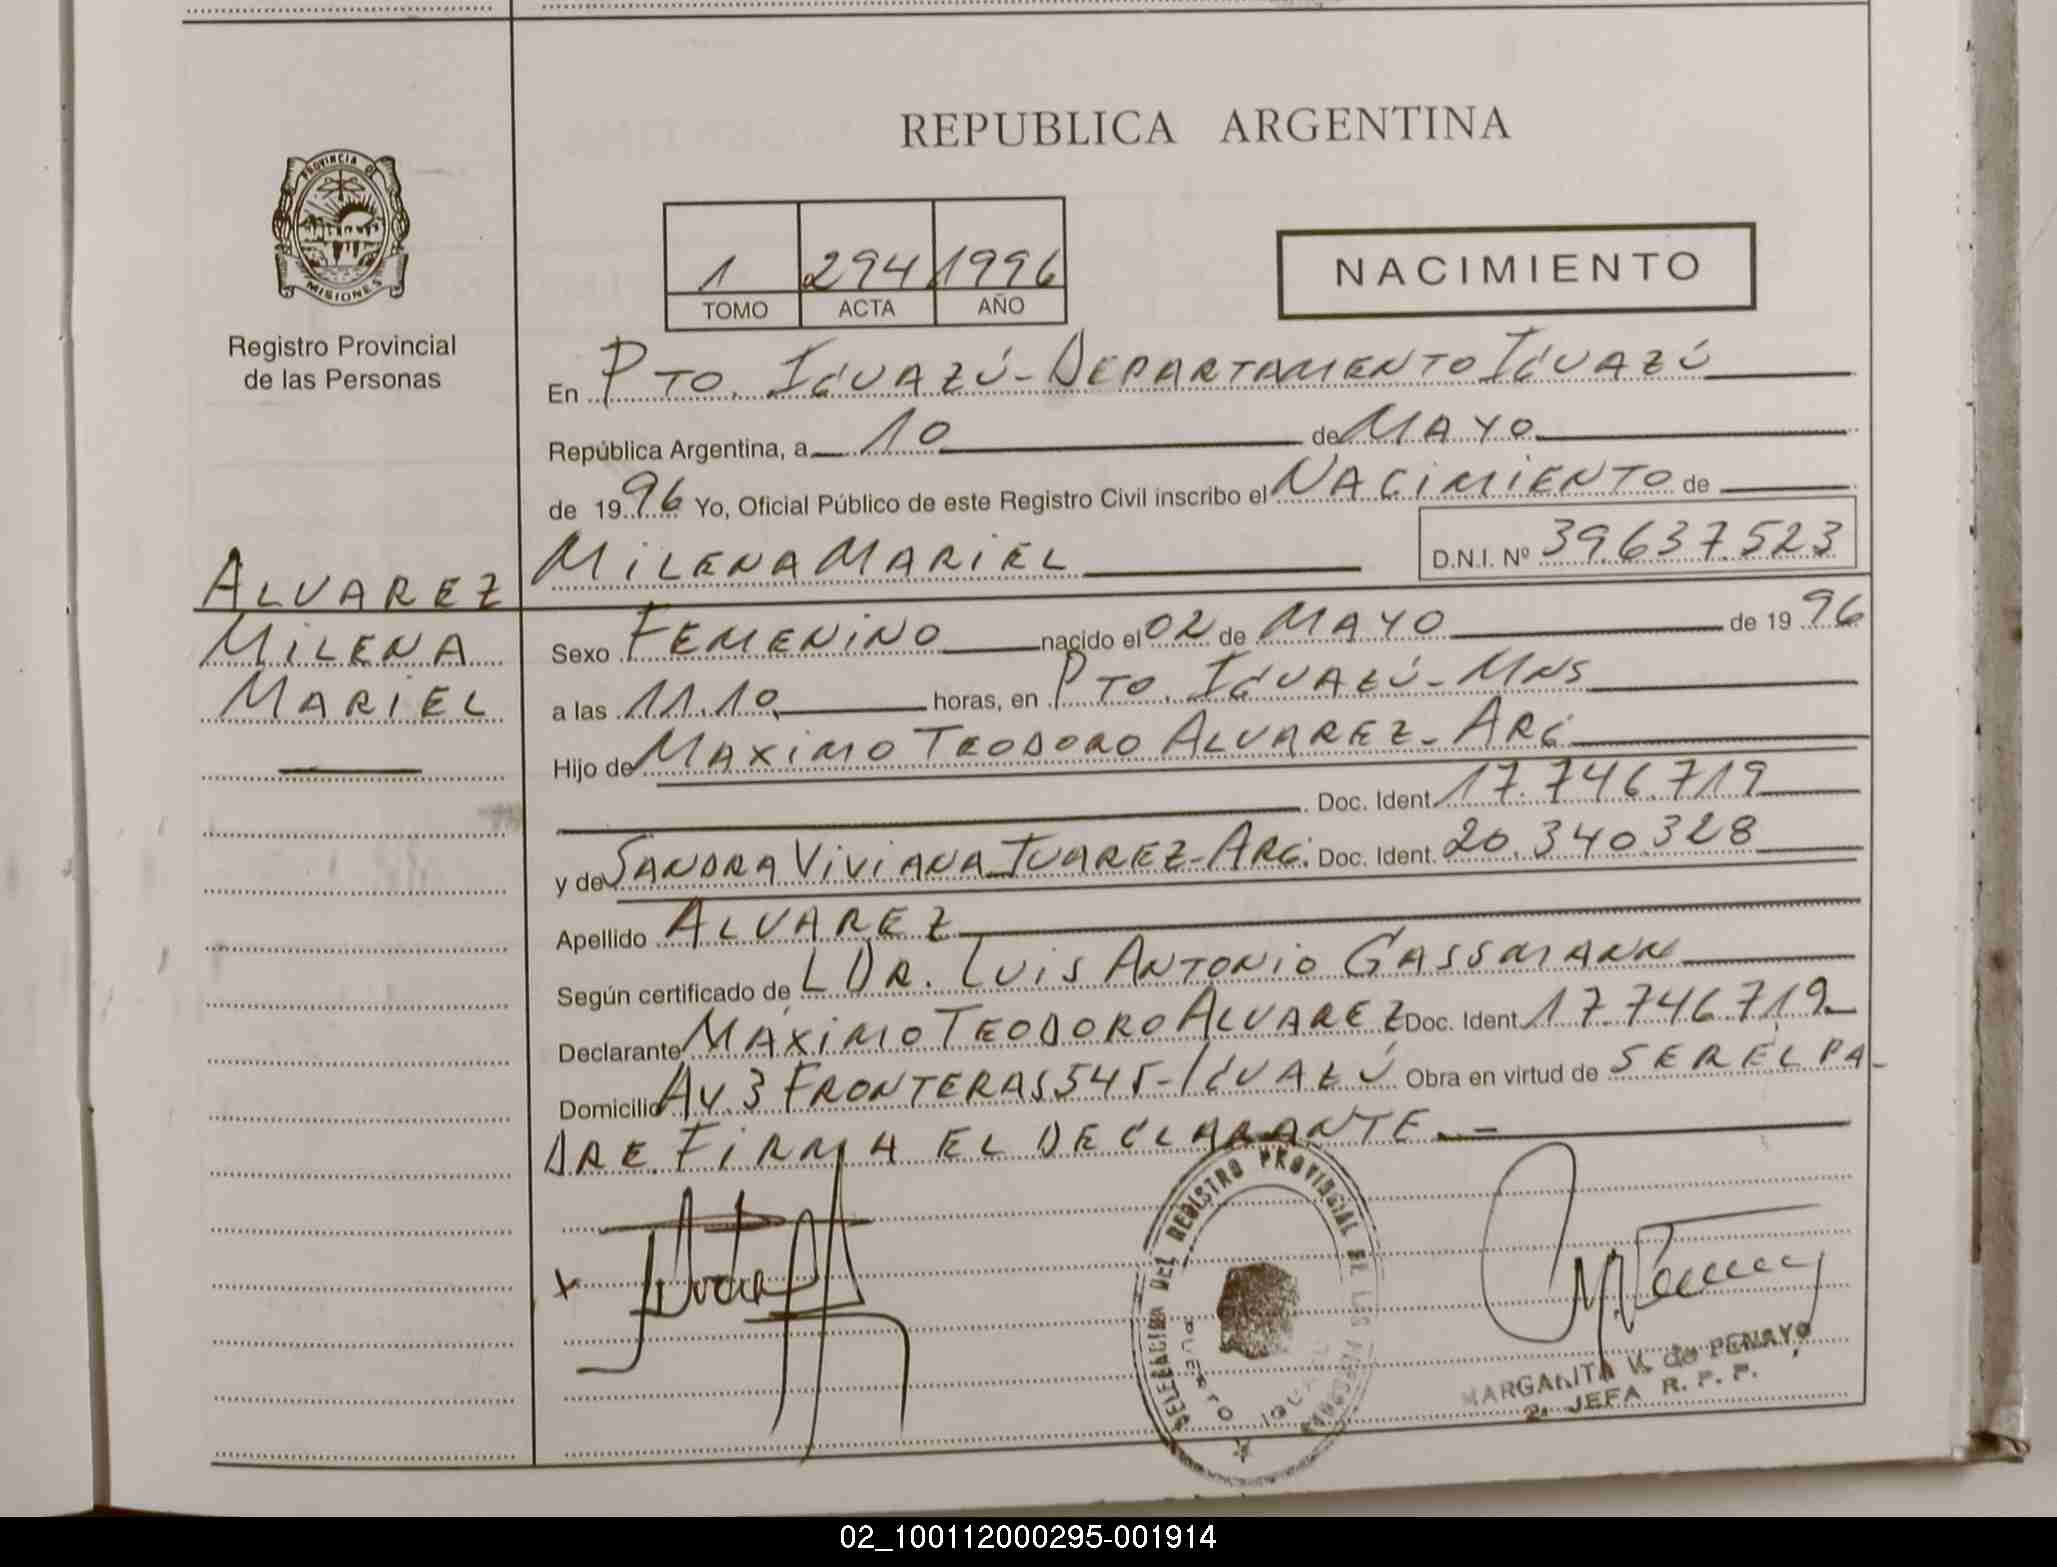 REPUBLICA ARGENTINA
PROVINCIA DE
MISIONES
Registro Provincial
de las Personas
1 294 1996
TOMO ACTA AÑO
NACIMIENTO
En PTO. IGUAZÚ - DEPARTAMENTO IGUAZÚ
República Argentina, a 10 de MAYO
de 1996 Yo, Oficial Público de este Registro Civil inscribo el NACIMIENTO de
MILENA MARIEL D.N.I. Nº 39.637.523
ALVAREZ
MILENA
MARIEL
Sexo FEMENINO nacido el 02 de MAYO de 1996
a las 11.10 horas, en PTO. IGUAZÚ - MNS
Hijo de MAXIMO TEODORO ALVAREZ - ARG
Doc. Ident 17.746.719
y de SANDRA VIVIANA JUAREZ - ARG. Doc. Ident. 20.340.328
Apellido ALVAREZ
Según certificado de L DR. LUIS ANTONIO GASSMANN
Declarante MÁXIMO TEODORO ALVAREZ Doc. Ident 17.746.719
Domicilio AV 3 FRONTERAS 545 - IGUAZÚ Obra en virtud de SER EL PA-
DRE FIRMA EL DECLARANTE. -
X
DELEGACION DEL REGISTRO PROVINCIAL DE LAS PERSONAS
PUERTO IGUAZU
MARGARITA V. de PENAYO
2ª JEFA R. P. P.
02_100112000295-001914